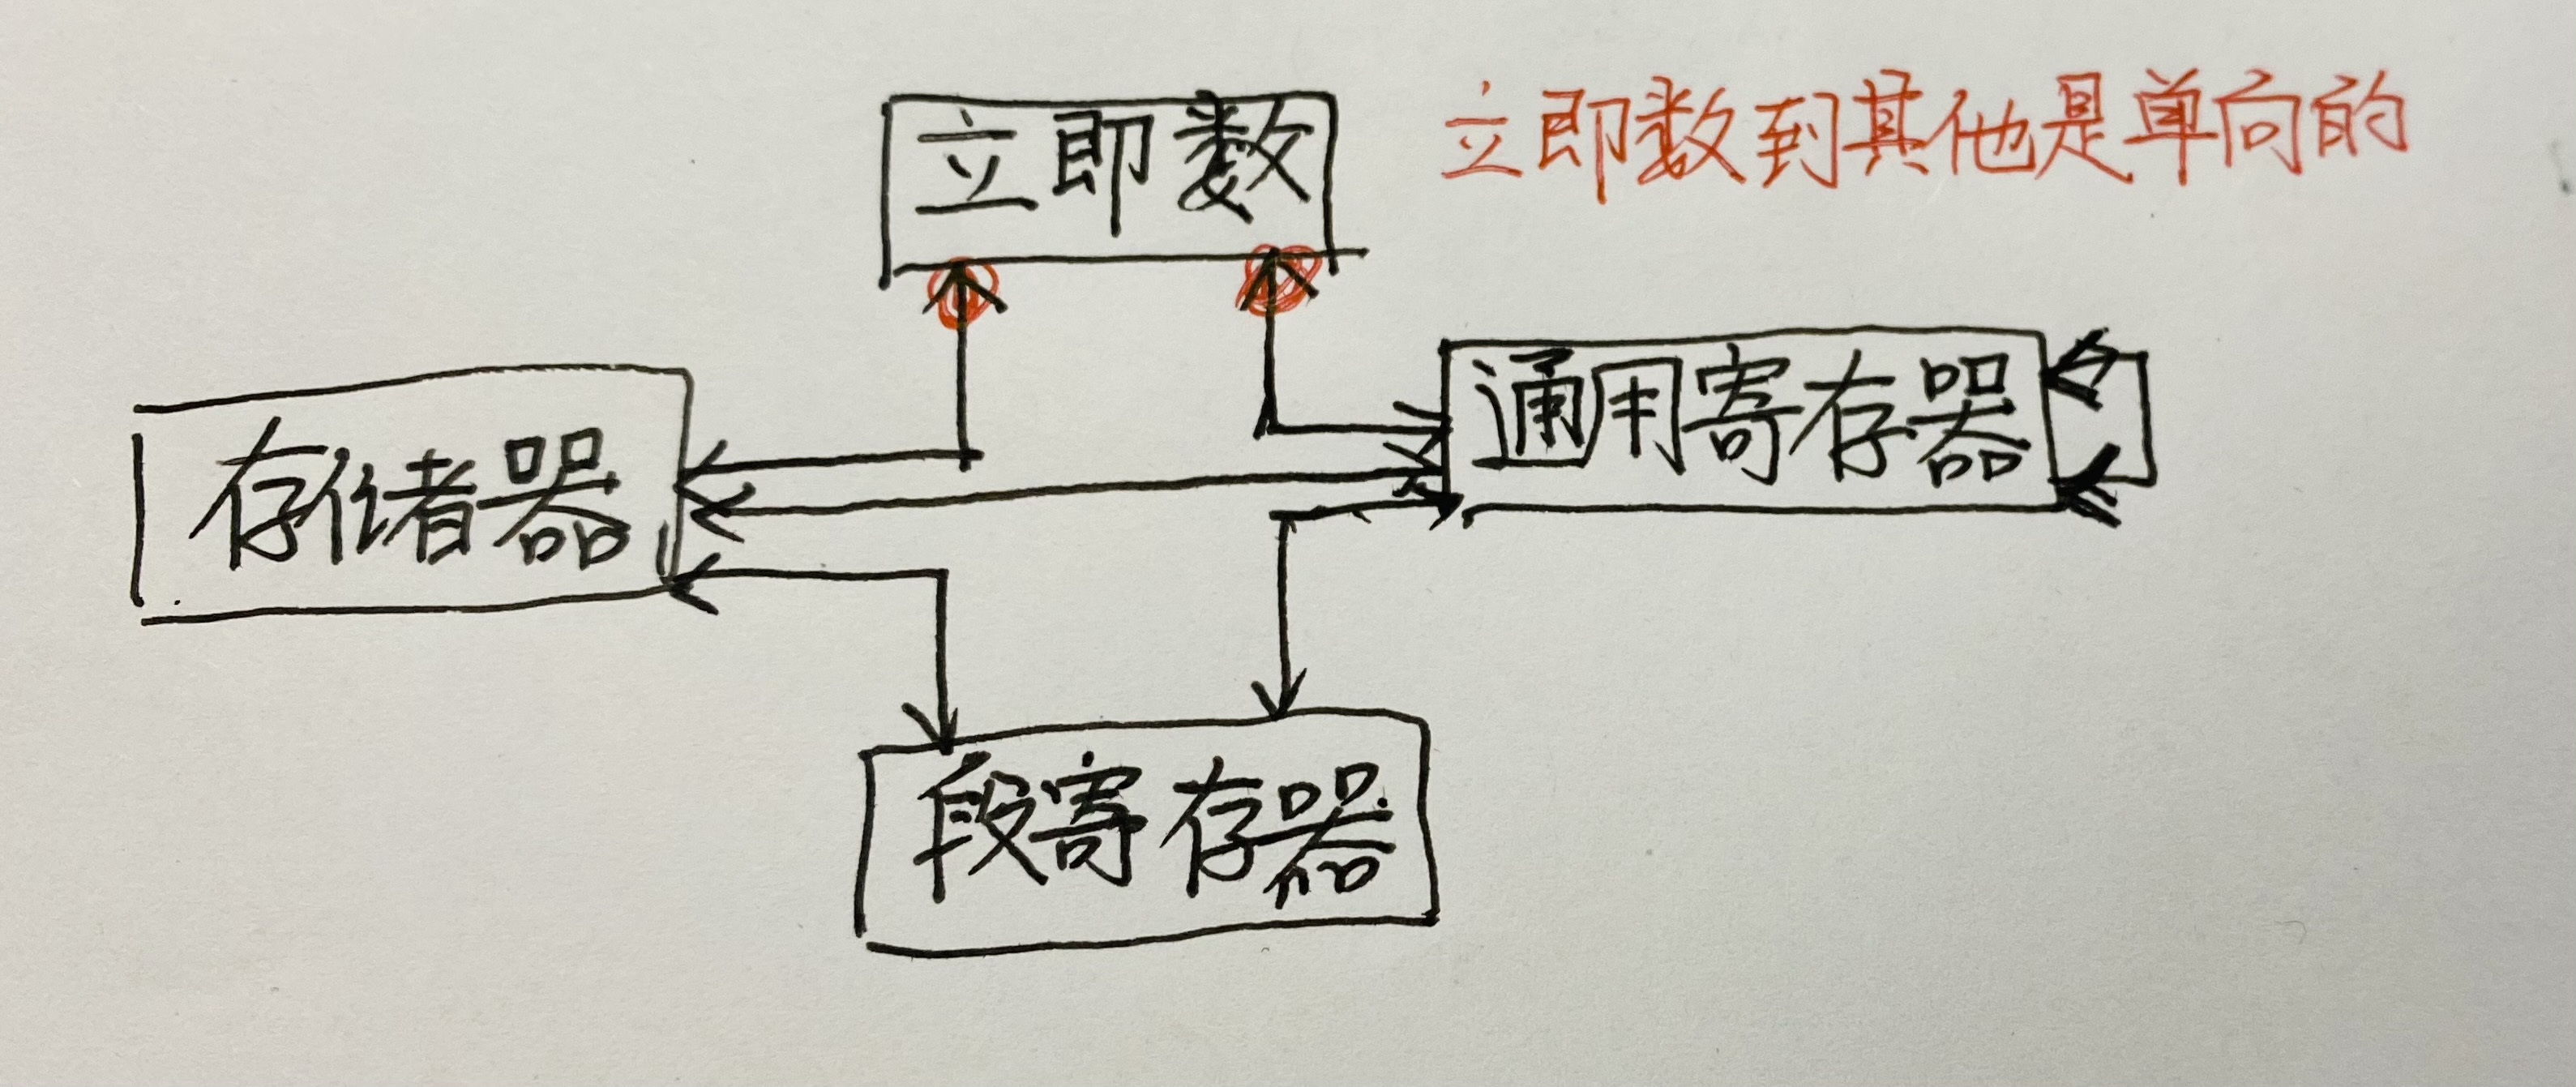 立即数
立即数到其他是单向的
存储器
通用寄存器
段寄存器